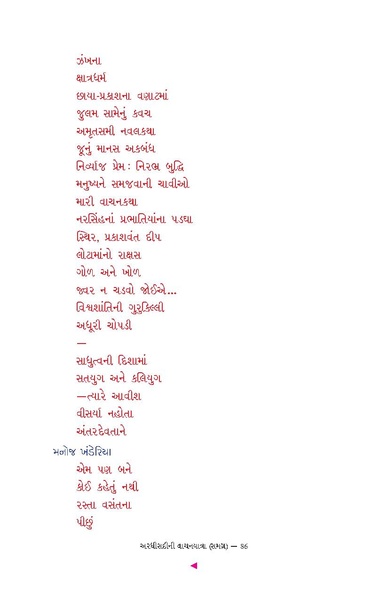 ઝંખના
ક્ષાત્રધર્મ
છાયા-પ્રકાશના વણાટમાં
જુલમ સામેનું કવચ
અમૃતસમી નવલકથા
જૂનું માનસ અકબંધ
નિર્વ્યાજ પ્રેમ : નિરભ્ર બુદ્ધિ
મનુષ્યને સમજવાની ચાવીઓ
મારી વાચનકથા
નરસિંહનાં પ્રભાતિયાંના પડઘા
સ્થિર, પ્રકાશવંત દીપ
લોટામાંનો રાક્ષસ
ગોળ અને ખોળ
જ્વર ન ચડવો જોઈએ…
વિશ્વશાંતિની ગુરુકિલ્લી
અધૂરી ચોપડી
—
સાધુત્વની દિશામાં
સતયુગ અને કલિયુગ
—ત્યારે આવીશ
વીસર્યા નહોતા
અંતરદેવતાને
મનોજ ખંડેરિયા
એમ પણ બને
કોઈ કહેતું નથી
રસ્તા વસંતના
પીછું
અરધીસદીની વાચનયાત્રા (સમગ્ર) — 86